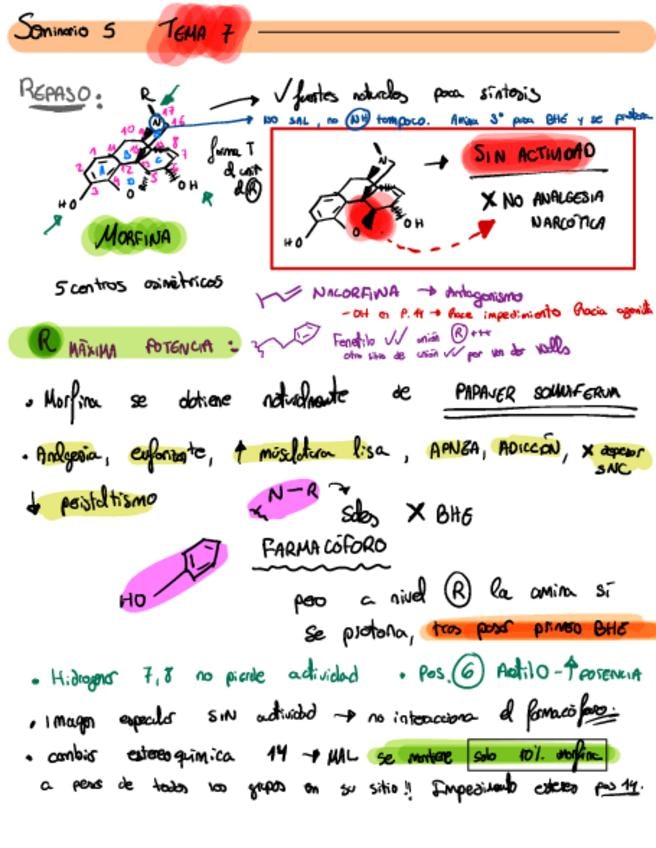 Seminario 5 TEMA 7
REPASO:
R
✓ fuentes naturales poca síntesis
NO SAL, no NH tampoco. Amina 3º para BHE y se protona
N 17
16
10
1 11 B 15 8
2 A 13 C 7
3 4 12 D 5
O
OH
HO
forma T
R
MORFINA
N
O
OH
HO
SIN ACTIVIDAD
X NO ANALGESIA
NARCÓTICA
5 centros asimétricos
NALORFINA → Antagonismo
- OH en P. 14 → hace impedimento hacia agonista
R MÁXIMA POTENCIA:
Fenetilo ✓✓ unión R +++
otro sitio de unión ✓✓ por van der Walls
• Morfina se obtiene naturalmente de PAPAVER SOMNIFERUM
• Analgesia, euforizante, ↑ músculatura lisa, APNEA, ADICCIÓN, X depresor
SNC
↓ peristaltismo
N-R
Sales X BHE
FARMACÓFORO
HO
pero a nivel R la amina sí
se protona, tras pasar primero BHE
• Hidrogenar 7,8 no pierde actividad • Pos. 6 Acetilo - ↑ POTENCIA
• Imagen especular SIN actividad → no interacciona el farmacóforo:
• cambio estereoquímica 14 → MAL se mantiene solo 10% morfina
a pesar de todos los grupos en su sitio!! Impedimento estereo pos 14.